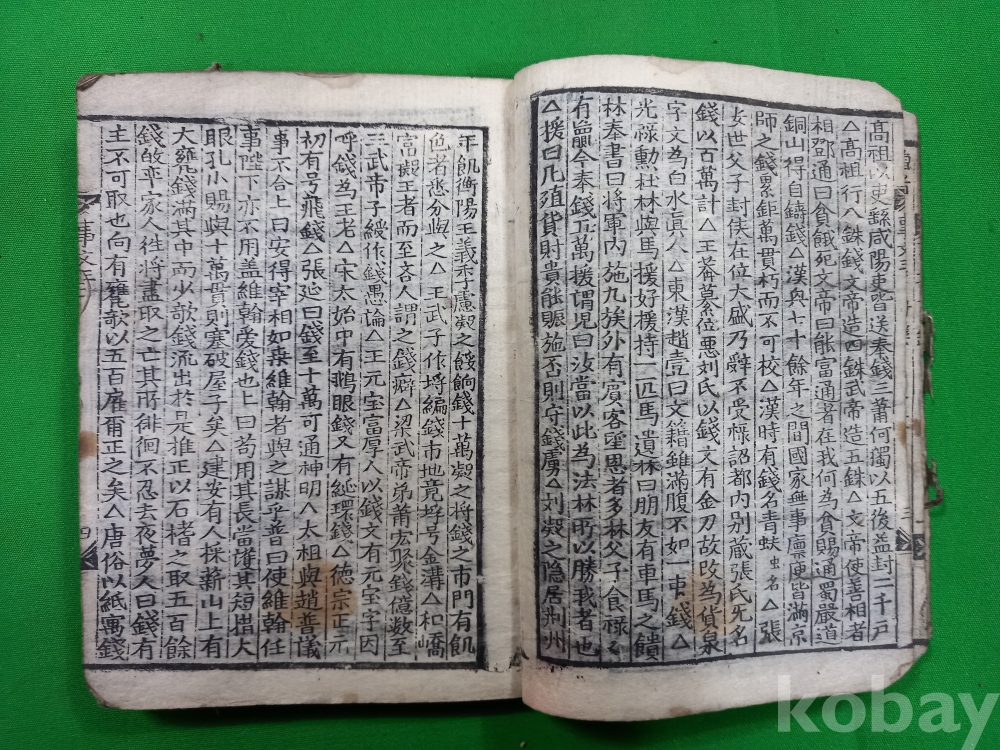 高祖以吏繇咸陽吏皆送奉錢三蕭何獨以五後益封二千戸
△高祖行八銖錢文帝造四銖武帝造五銖△文帝使善相者
相鄧通曰貧餓死文帝曰能富通者在我何為貧賜通蜀嚴道
銅山得自鑄錢△漢興七十餘年之間國家無事廪庾皆滿京
師之錢累鉅萬貫朽而不可校△漢時有錢名青蚨虫名△張
安世父子封侯在位大盛乃辞不受祿詔都内別蔵張氏无名
錢以百萬計△王莾簒位悪刘氏以錢文有金刀故改為貨泉
字文為白水眞人△東漢趙壹曰文籍雖滿腹不如一囊錢△
光祿勳杜林與馬援好援持一匹馬遺林曰朋友有車馬之饋
林奉書曰將軍内施九族外有賓客望恩者多林父子食祿
有嬴今奉錢五萬援謂児曰汝當以此為法林所以勝我者也
△援曰凡殖貨財貴能賑施否則守錢虜△刘凝之隐居荆州
年飢衡陽王義季慮凝之餒餉錢十萬凝之将錢之市門有飢
色者悉分與之△王武子作埒編錢市地竟埒号金溝△和嶠
富擬王者而至吝人謂之錢癖△梁武帝弟莆宏聚錢億数至
三武帝子綬作錢愚論△王元宝富厚人以錢文有元宝字因
呼錢為王老△宋太始中有鵝眼錢又有綖環錢△徳宗正元
初有号飛錢△張延曰錢至十萬可通神明△太祖與趙普議
事不合上曰安得宰相如桒維翰者與之謀乎普曰使維翰在
事陛下亦不用盖維翰爱錢也上曰苟用其長當護其短措大
眼孔小賜與十萬貫則塞破屋子矣△建安有人採薪山上有
大甕錢滿其中而少欹錢流出於是推正以石楮之取五百餘
錢皈率家人徃將盡取之亡其所徘徊不忍去夜夢人曰錢有
主不可取也向有甕欹以五百雇甭正之矣△唐俗以紙寓錢